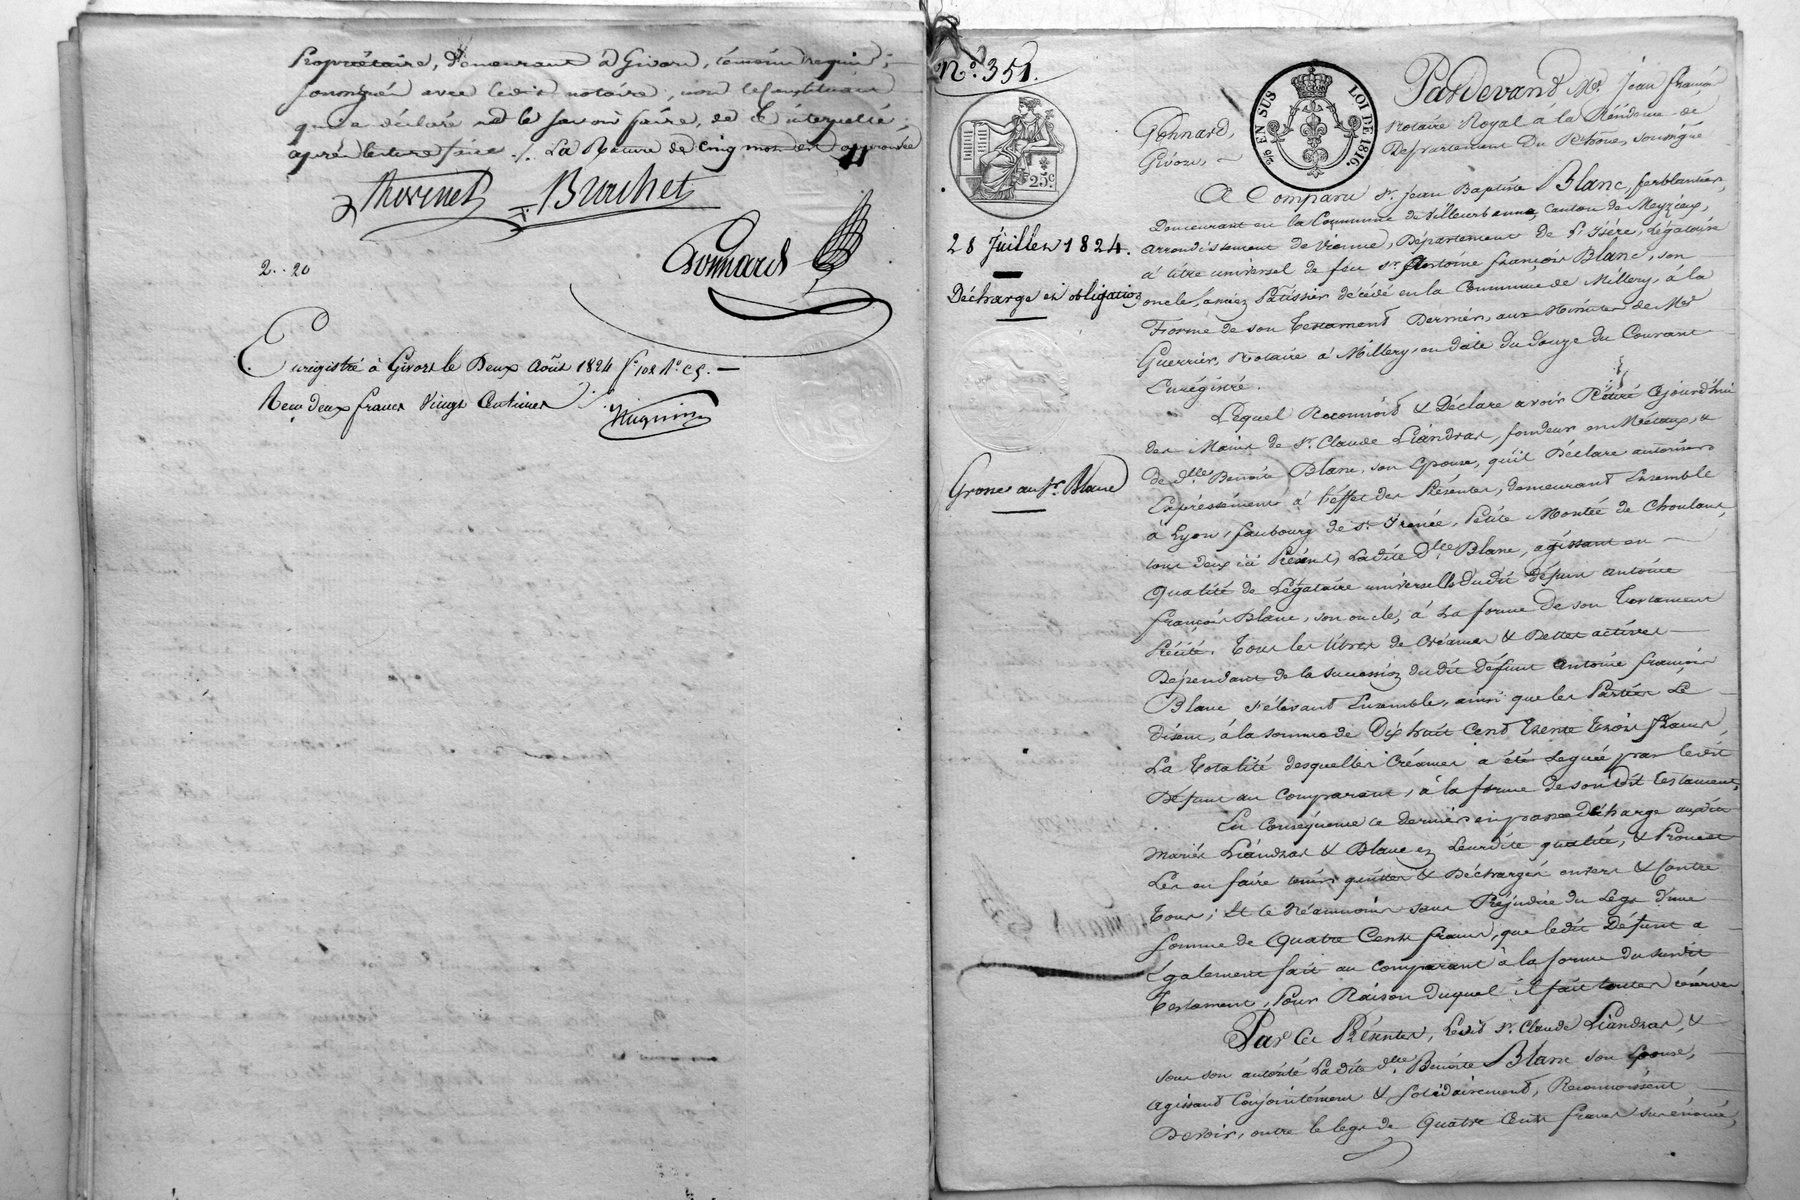 Propriétaire, demeurant à Givors, témoins requis;
soussignés avec ledit notaire, non le constituant
qui a déclaré ne le savoir faire, de ce interpellé
après lecture faite ./. La Rature de cinq mots est approuvée
Thevenet Brachet
Gonnard
2..20
Enregistré à Givors le Deux Août 1824 f° 108 R° C 5. —
Reçu deux francs Vingt Centimes
N° 351.
25 C
EN SUS LOI DE 1816.
28 Juillet 1824.
Décharge et obligation
Grosse au Sr. Blanc
Pardevant Me. Jean François
Gonnard, Notaire Royal à la Résidence de
Givors, Département du Rhône, soussigné
A Comparu Sr. Jean Baptiste Blanc, ferblantier,
Demeurant en la Commune de Villeurbanne, Canton de Meyzieux,
arrondissement de Vienne, Département de l'Isère, Légataire
à titre universel de feu Sr. Antoine François Blanc, son
oncle, ancien Patissier décédé en la Commune de Millery, à la
Forme de son Testament Dernier, aux Minutes de Me
Guerrier, Notaire à Millery, en date du douze du Courant
Enrégistré.
Lequel Reconnoit & Déclare avoir Rétiré Cejourd'hui
des Mains de Sr. Claude Liandras, fondeur en Métaux, &
de dlle. Benoite Blanc, son Epouse, qu'il Déclare autoriser
Expréssément à l'éffet des Présentes, demeurant Ensemble
à Lyon, faubourg de St. Irenée, Petite Montée de Choulans,
tous deux ici Présents, Ladite dlle. Blanc, agissant en
Qualité de Légataire universelle dudit défunt antoine
François Blanc, son oncle, à la forme de son Testament
Précité. Tous les titres de Créances & Dettes actives
Dépendant de la succession dudit défunt antoine françois
Blanc s'élevant Ensemble, ainsi que les Parties Le
disent, à la somme de Dix huit Cent Trente Trois francs
La Totalité desquelles Créances a été Leguée par ledit
Défunt au Comparant, à la forme de sondit testament,
En Conséquence ce dernier en passe décharge auxdits
mariés Liandras & Blanc en Leurdite qualité, & Promet
Les en faire tenir quittes & Déchargés envers & Contre
Tous; Et ce néanmoins sans Préjudice du Legs d'une
somme de Quatre Cents francs, que ledit Défunt a
également fait au Comparant à la forme du susdit
Testament, Pour Raison duquel il fait toutes réserves
Par Ces Présentes, Ledit Sr. Claude Liandras, &
sous son autorité Ladite dlle. Benoite Blanc son Epouse,
agissant Conjointément & solidairement, Reconnoissent
Devoir, outre le legs de Quatre Cents francs susénoncé,